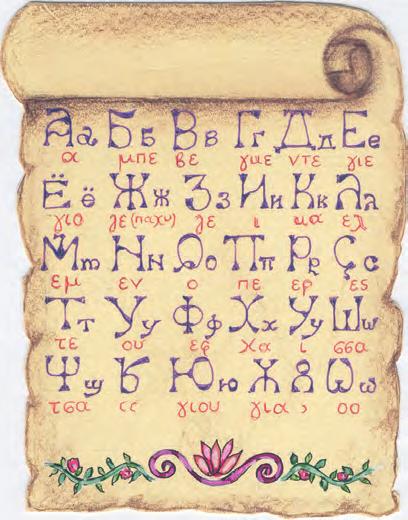 Аа Бб Вв Гг Дд Ее
α μπε βε γκε ντε γιε
Ёё Жж Зз Ии Кк Лл
γιο ζε(παχυ) ζε ι κα ελ
Мм Нн Оо Пп Рр Сс
εμ εν ο πε ερ ες
Тт Уу Фф Хх Уу Шш
τε ου εφ χα ι σσα
Юю Ѡѡ
τσα γιου για οο